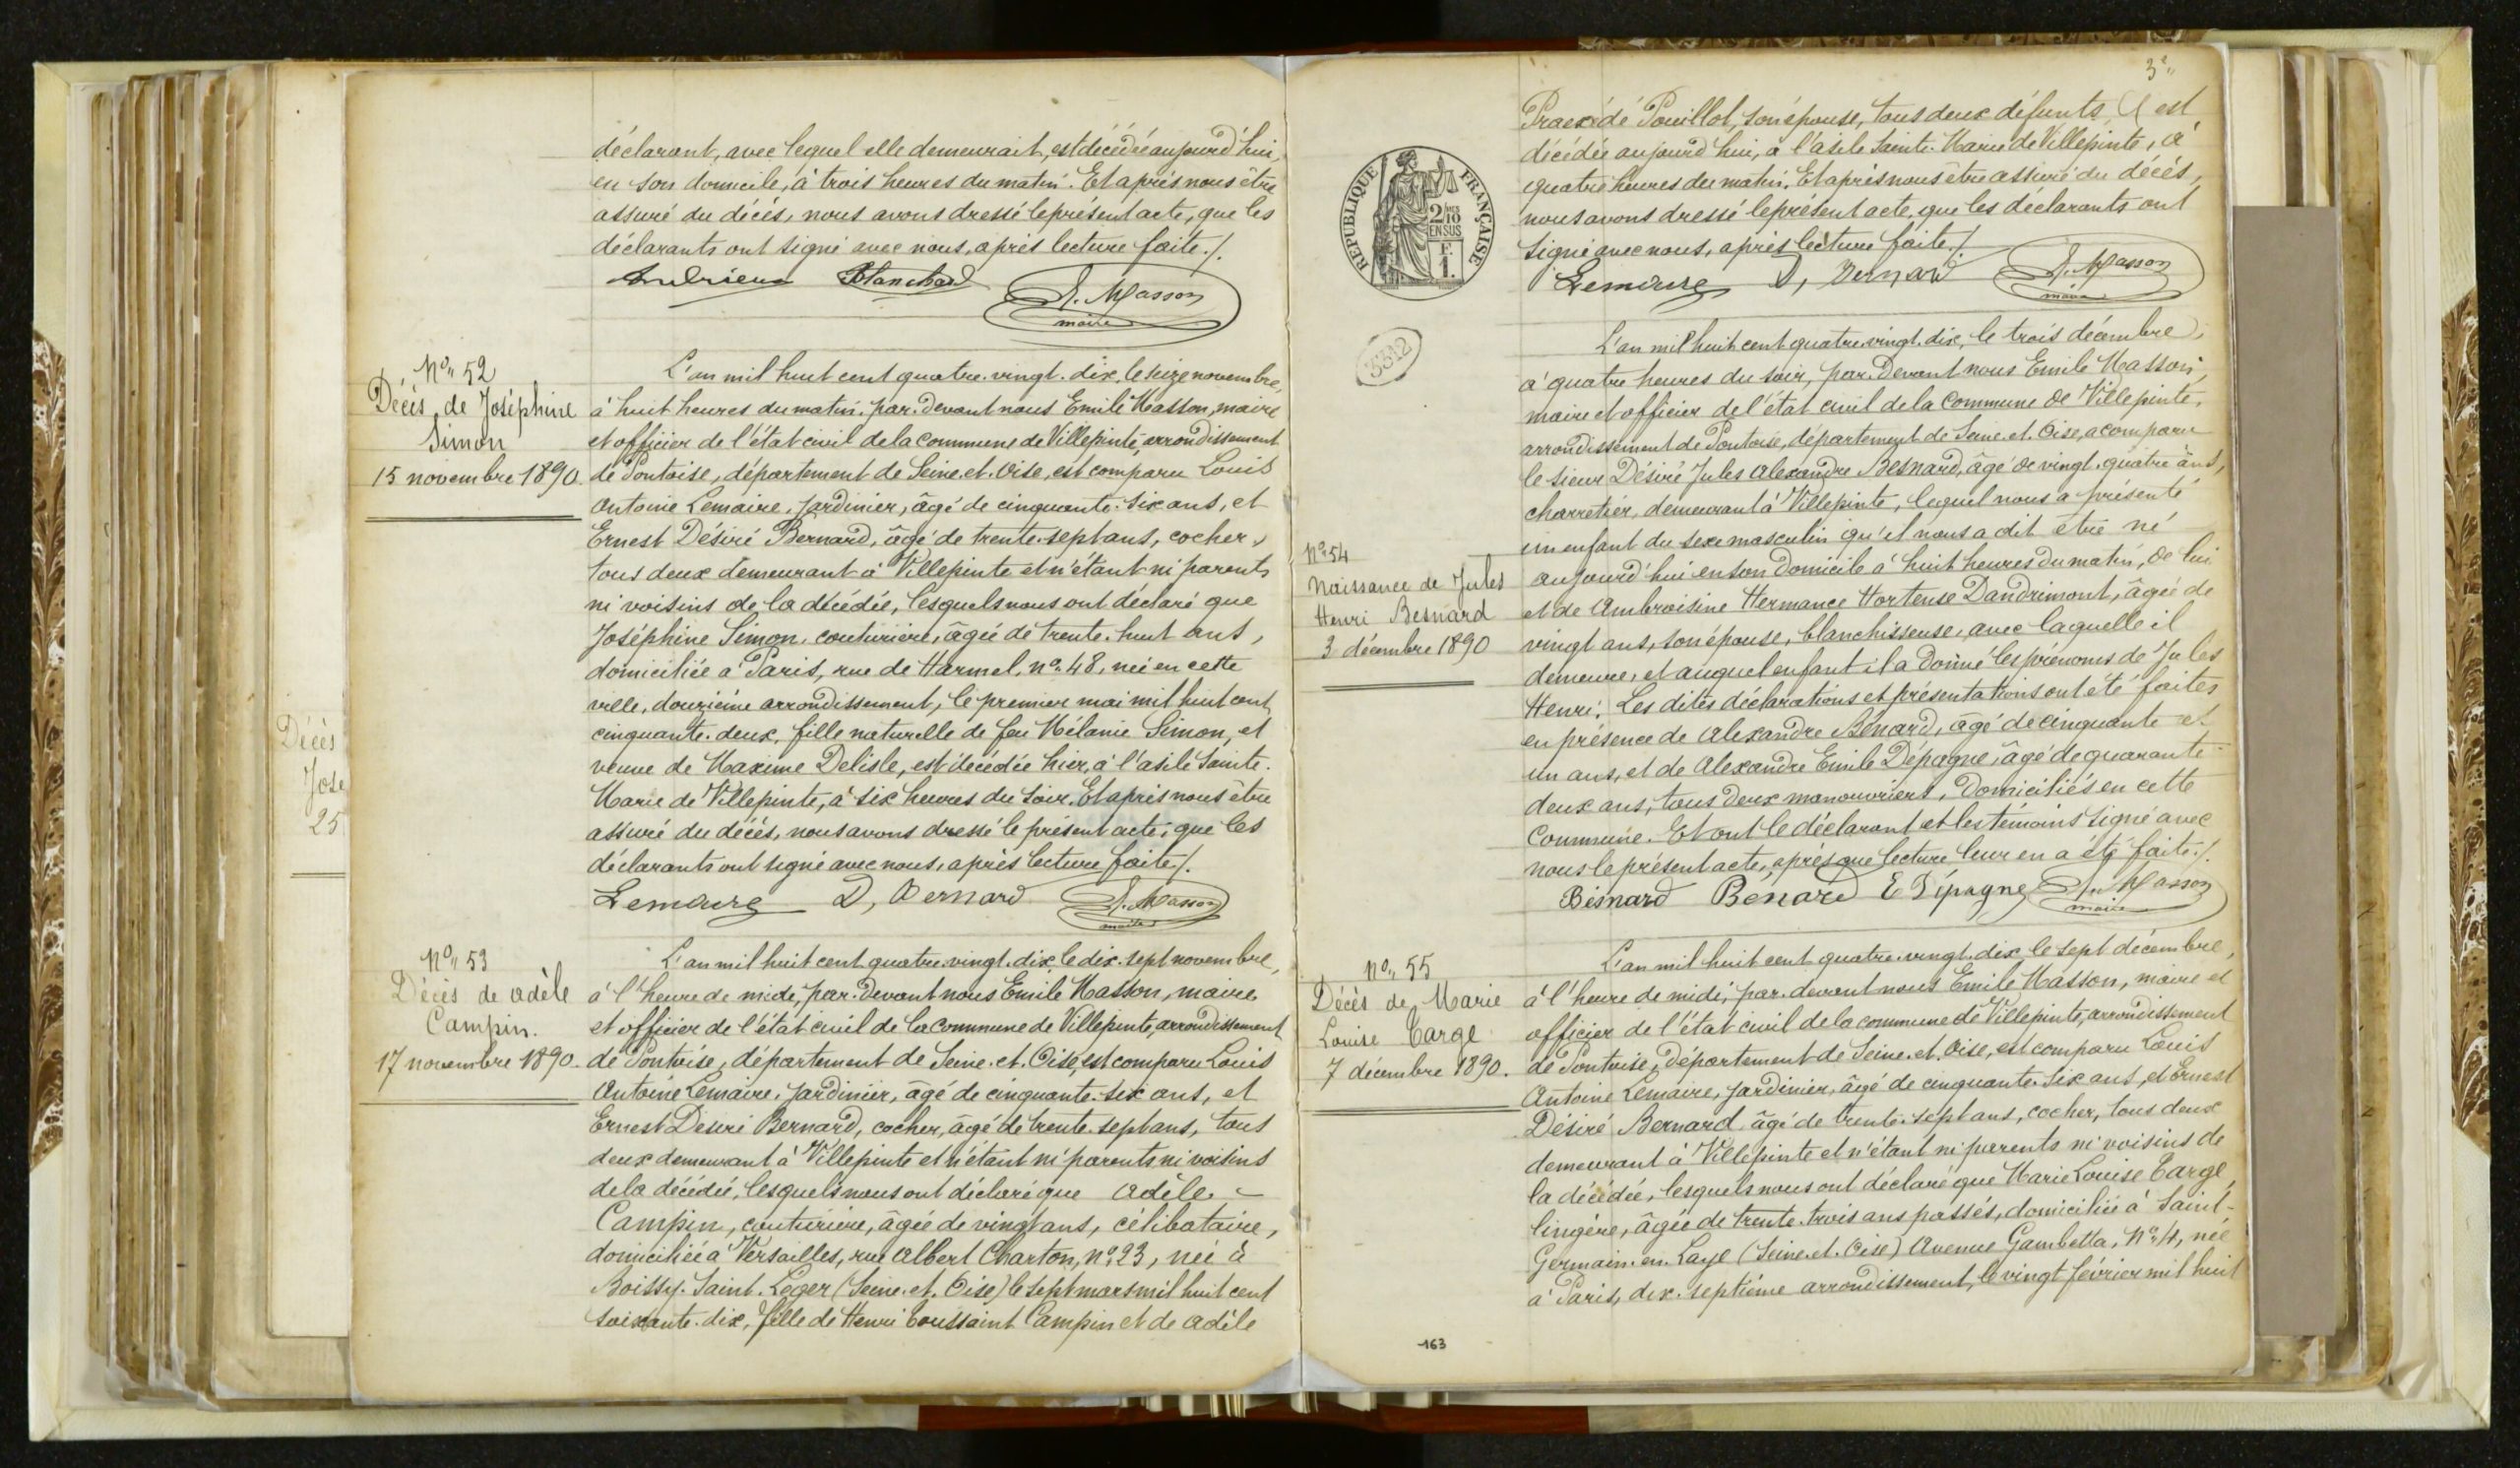 déclarant, avec lequel elle demeurait, est décédée aujourd'hui,
en son domicile, à trois heures du matin. Et après nous être
assuré du décès, nous avons dressé le présent acte, que les
déclarants ont signé avec nous, après lecture faite./.
Andrieux Blanchard E. Masson
maire
N° 52
Décès de Joséphine
Simon
15 novembre 1890
L'an mil huit cent quatre-vingt-dix, le seize novembre,
à huit heures du matin, par-devant nous Emile Masson, maire
et officier de l'état civil de la commune de Villepinte, arrondissement
de Pontoise, département de Seine-et-Oise, est comparu Louis
Antoine Lemaire, jardinier, âgé de cinquante-six ans, et
Ernest Désiré Bernard, âgé de trente-sept ans, cocher,
tous deux demeurant à Villepinte et n'étant ni parents
ni voisins de la décédée, lesquels nous ont déclaré que
Joséphine Simon, couturière, âgée de trente-huit ans,
domiciliée à Paris, rue de Harmel, n° 48, née en cette
ville, douzième arrondissement, le premier mai mil huit cent
cinquante-deux, fille naturelle de feu Mélanie Simon, et
veuve de Maxime Delisle, est décédée hier, à l'asile Sainte-
Marie de Villepinte, à six heures du soir. Et après nous être
assuré du décès, nous avons dressé le présent acte, que les
déclarants ont signé avec nous, après lecture faite./.
Lemaire D, Bernard E. Masson
maire
N° 53
Décès de Adèle
Campin.
17 novembre 1890.
L'an mil huit cent quatre-vingt-dix, le dix-sept novembre,
à l'heure de midi, par-devant nous Emile Masson, maire
et officier de l'état civil de la commune de Villepinte, arrondissement
de Pontoise, département de Seine-et-Oise, est comparu Louis
Antoine Lemaire, jardinier, âgé de cinquante-six ans, et
Ernest Désiré Bernard, cocher, âgé de trente-sept ans, tous
deux demeurant à Villepinte et n'étant ni parents ni voisins
de la décédée, lesquels nous ont déclaré que Adèle
Campin, couturière, âgée de vingt ans, célibataire,
domiciliée à Versailles, rue Albert Charton, n° 23, née à
Boissy-Saint-Léger (Seine-et-Oise) le sept mars mil huit cent
soixante-dix, fille de Henri Toussaint Campin et de Adèle
Décès
Jose
25
3e
Praexède Pouillot, son épouse, tous deux défunts, est
décédée aujourd'hui, à l'asile Sainte-Marie de Villepinte, à
quatre heures du matin. Et après nous être assuré du décès,
nous avons dressé le présent acte, que les déclarants ont
signé avec nous, après lecture faite./.
Lemaire D, Bernard E. Masson
maire
RÉPUBLIQUE FRANÇAISE
2/10 MES
EN SUS
F.
1.
3312
L'an mil huit cent quatre-vingt-dix, le trois décembre,
à quatre heures du soir, par-devant nous Emile Masson,
maire et officier de l'état civil de la commune de Villepinte,
arrondissement de Pontoise, département de Seine-et-Oise, a comparu
le sieur Désiré Jules Alexandre Besnard, âgé de vingt-quatre ans,
charretier, demeurant à Villepinte, lequel nous a présenté
un enfant du sexe masculin qu'il nous a dit être né
aujourd'hui en son domicile à huit heures du matin, de lui
et de Ambroisine Hermance Hortense Dandrimont, âgée de
vingt ans, son épouse, blanchisseuse, avec laquelle il
demeure, et auquel enfant il a donné les prénoms de Jules
Henri. Les dites déclarations et présentations ont été faites
en présence de Alexandre Bénard, âgé de cinquante et
un ans, et de Alexandre Emile Dépagne, âgé de quarante-
deux ans, tous deux manouvriers, domiciliés en cette
commune. Et ont le déclarant et les témoins signé avec
nous le présent acte, après que lecture leur en a été faite./.
Besnard Benard E Dépagne E. Masson
maire
N° 54
Naissance de Jules
Henri Besnard
3 décembre 1890
N° 55
Décès de Marie
Louise Targe
7 décembre 1890.
L'an mil huit cent quatre-vingt-dix, le sept décembre,
à l'heure de midi, par-devant nous Emile Masson, maire et
officier de l'état civil de la commune de Villepinte, arrondissement
de Pontoise, département de Seine-et-Oise, est comparu Louis
Antoine Lemaire, jardinier, âgé de cinquante-six ans, et Ernest
Désiré Bernard âgé de trente-sept ans, cocher, tous deux
demeurant à Villepinte et n'étant ni parents ni voisins de
la décédée, lesquels nous ont déclaré que Marie Louise Targe,
lingère, âgée de trente-trois ans passés, domiciliée à Saint-
Germain-en-Laye (Seine-et-Oise) Avenue Gambetta, N° 4, née
à Paris, dix-septième arrondissement, le vingt février mil huit
163